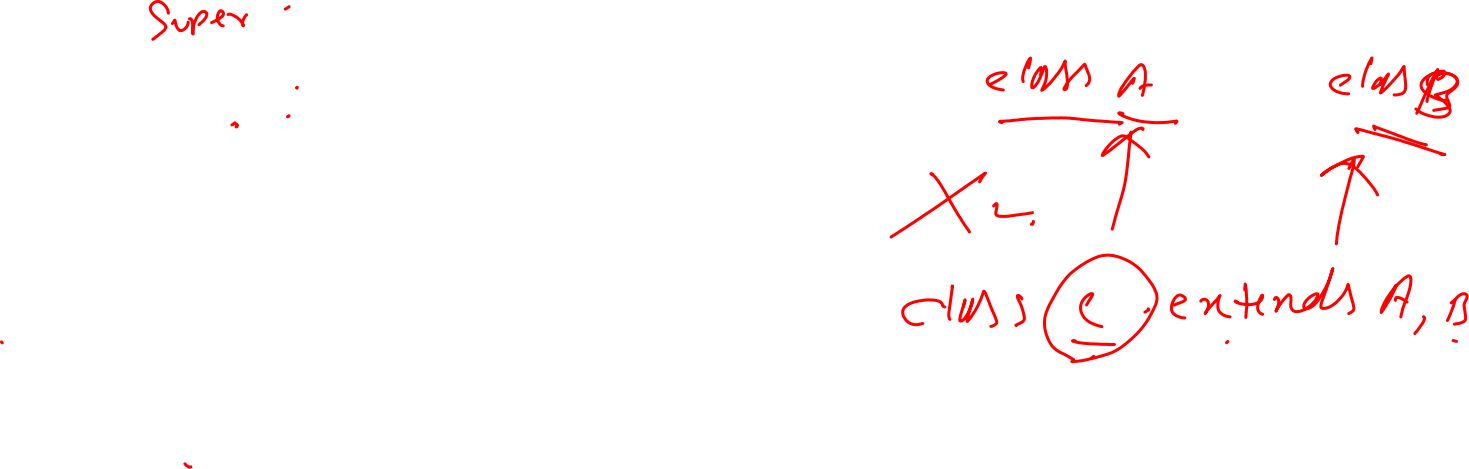 Super :
class A
clas B
class C extends A, B